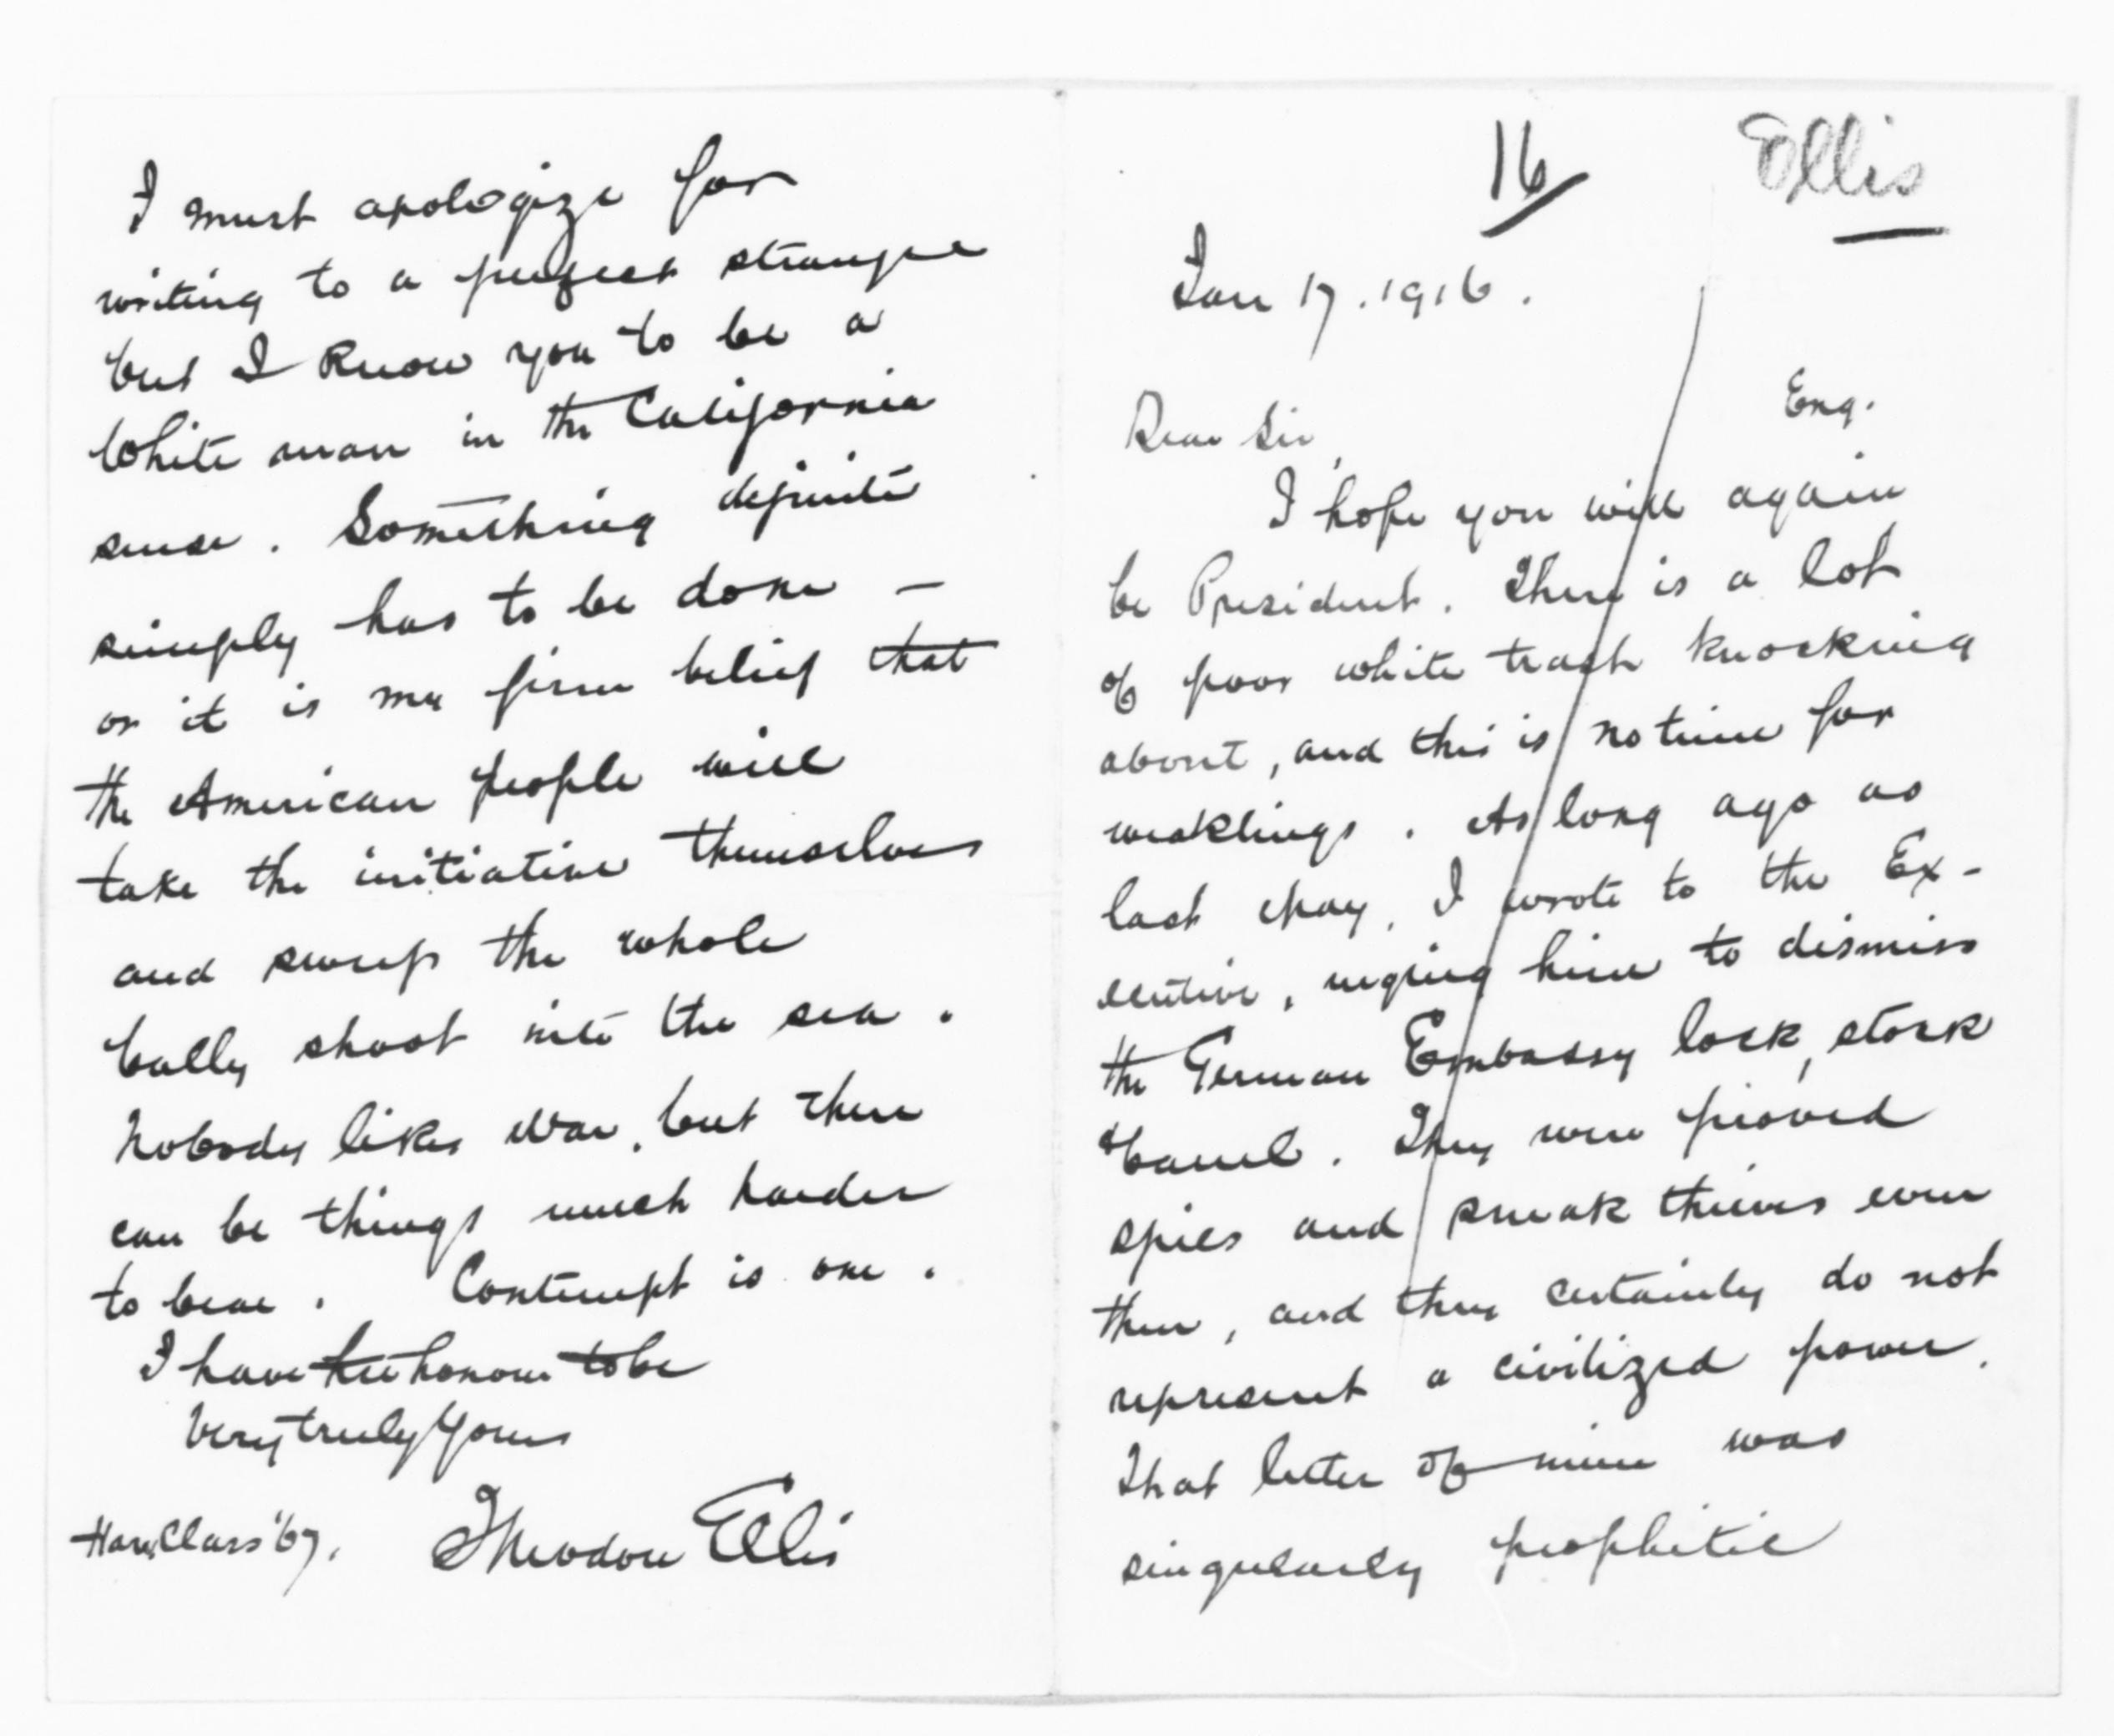 16 Ellis
Jan 17. 1916.
Eng.
Dear Sir,
I hope you will again
be President. There is a lot
of poor white trash knocking
about, and this is no time for
weaklings. As long ago as
last May, I wrote to the Ex-
ecutive, urging him to dismiss
the German Embassy lock, stock
& barrel. They were proved
spies and sneak thieves even
then, and they certainly do not
represent a civilized power.
That letter of mine was
singularly prophetic
I must apologize for
writing to a perfect stranger
but I know you to be a
White man in the California
sense. Something definite
simply has to be done –
or it is my firm belief that
the American people will
take the initiative themselves
and sweep the whole
bally shoot into the sea.
Nobody likes war, but there
can be things much harder
to bear. Contempt is one.
I have the honour to be
Very truly Yours
Harv. Class '67. Theodore Ellis